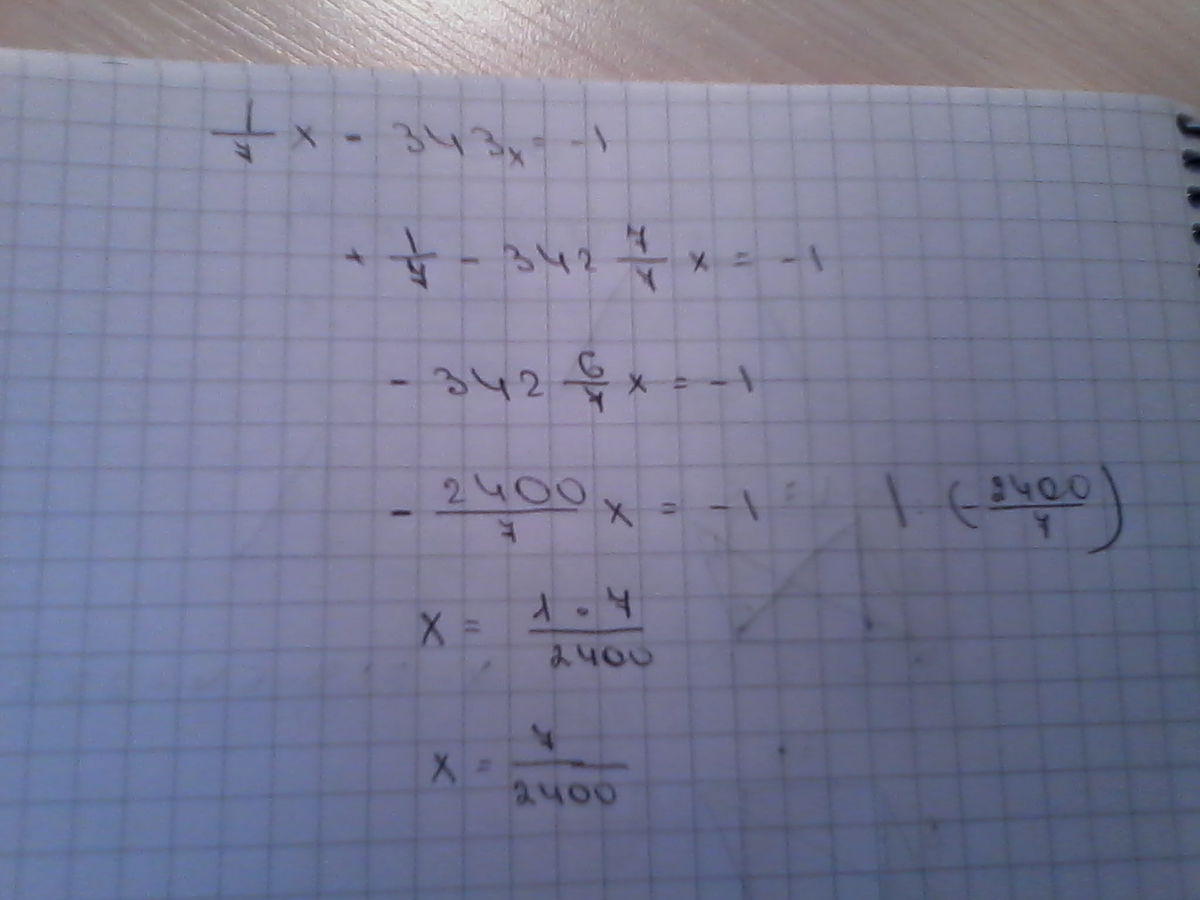 1/7 x - 343x = -1
+ 1/7 - 342 7/7 x = -1
- 342 6/7 x = -1
- 2400/7 x = -1 | : (-2400/7)
x = 1 · 7/2400
x = 7/2400